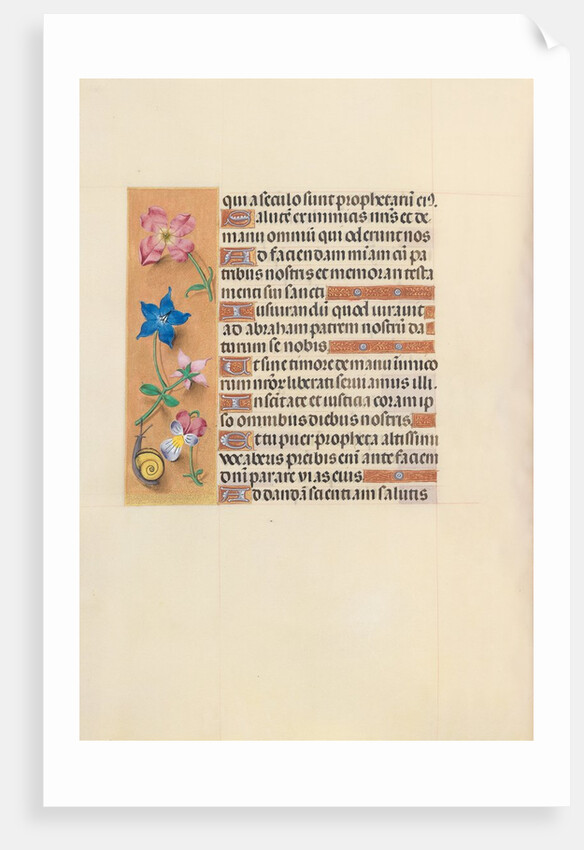 qui a seculo sunt prophetarū eiꝰ.
Salutē ex inimicis nr̄is et de
manu omniū qui oderunt nos
Ad faciendam miām cū pa
tribus nostris et memorari testa
menti sui sancti
Iusiurandū quod iuravit
ad abraham patrem nostrū da
turum se nobis
Ut sine timore de manu inimico
rum nr̄or̄ liberati serviamus illi.
In scitate et iusticia coram ip
so omnibus diebus nostris
Et tu puer propheta altissimi
vocaberis preibis enī ante faciem
dn̄i parare vias eius
Ad dandā scientiam salutis